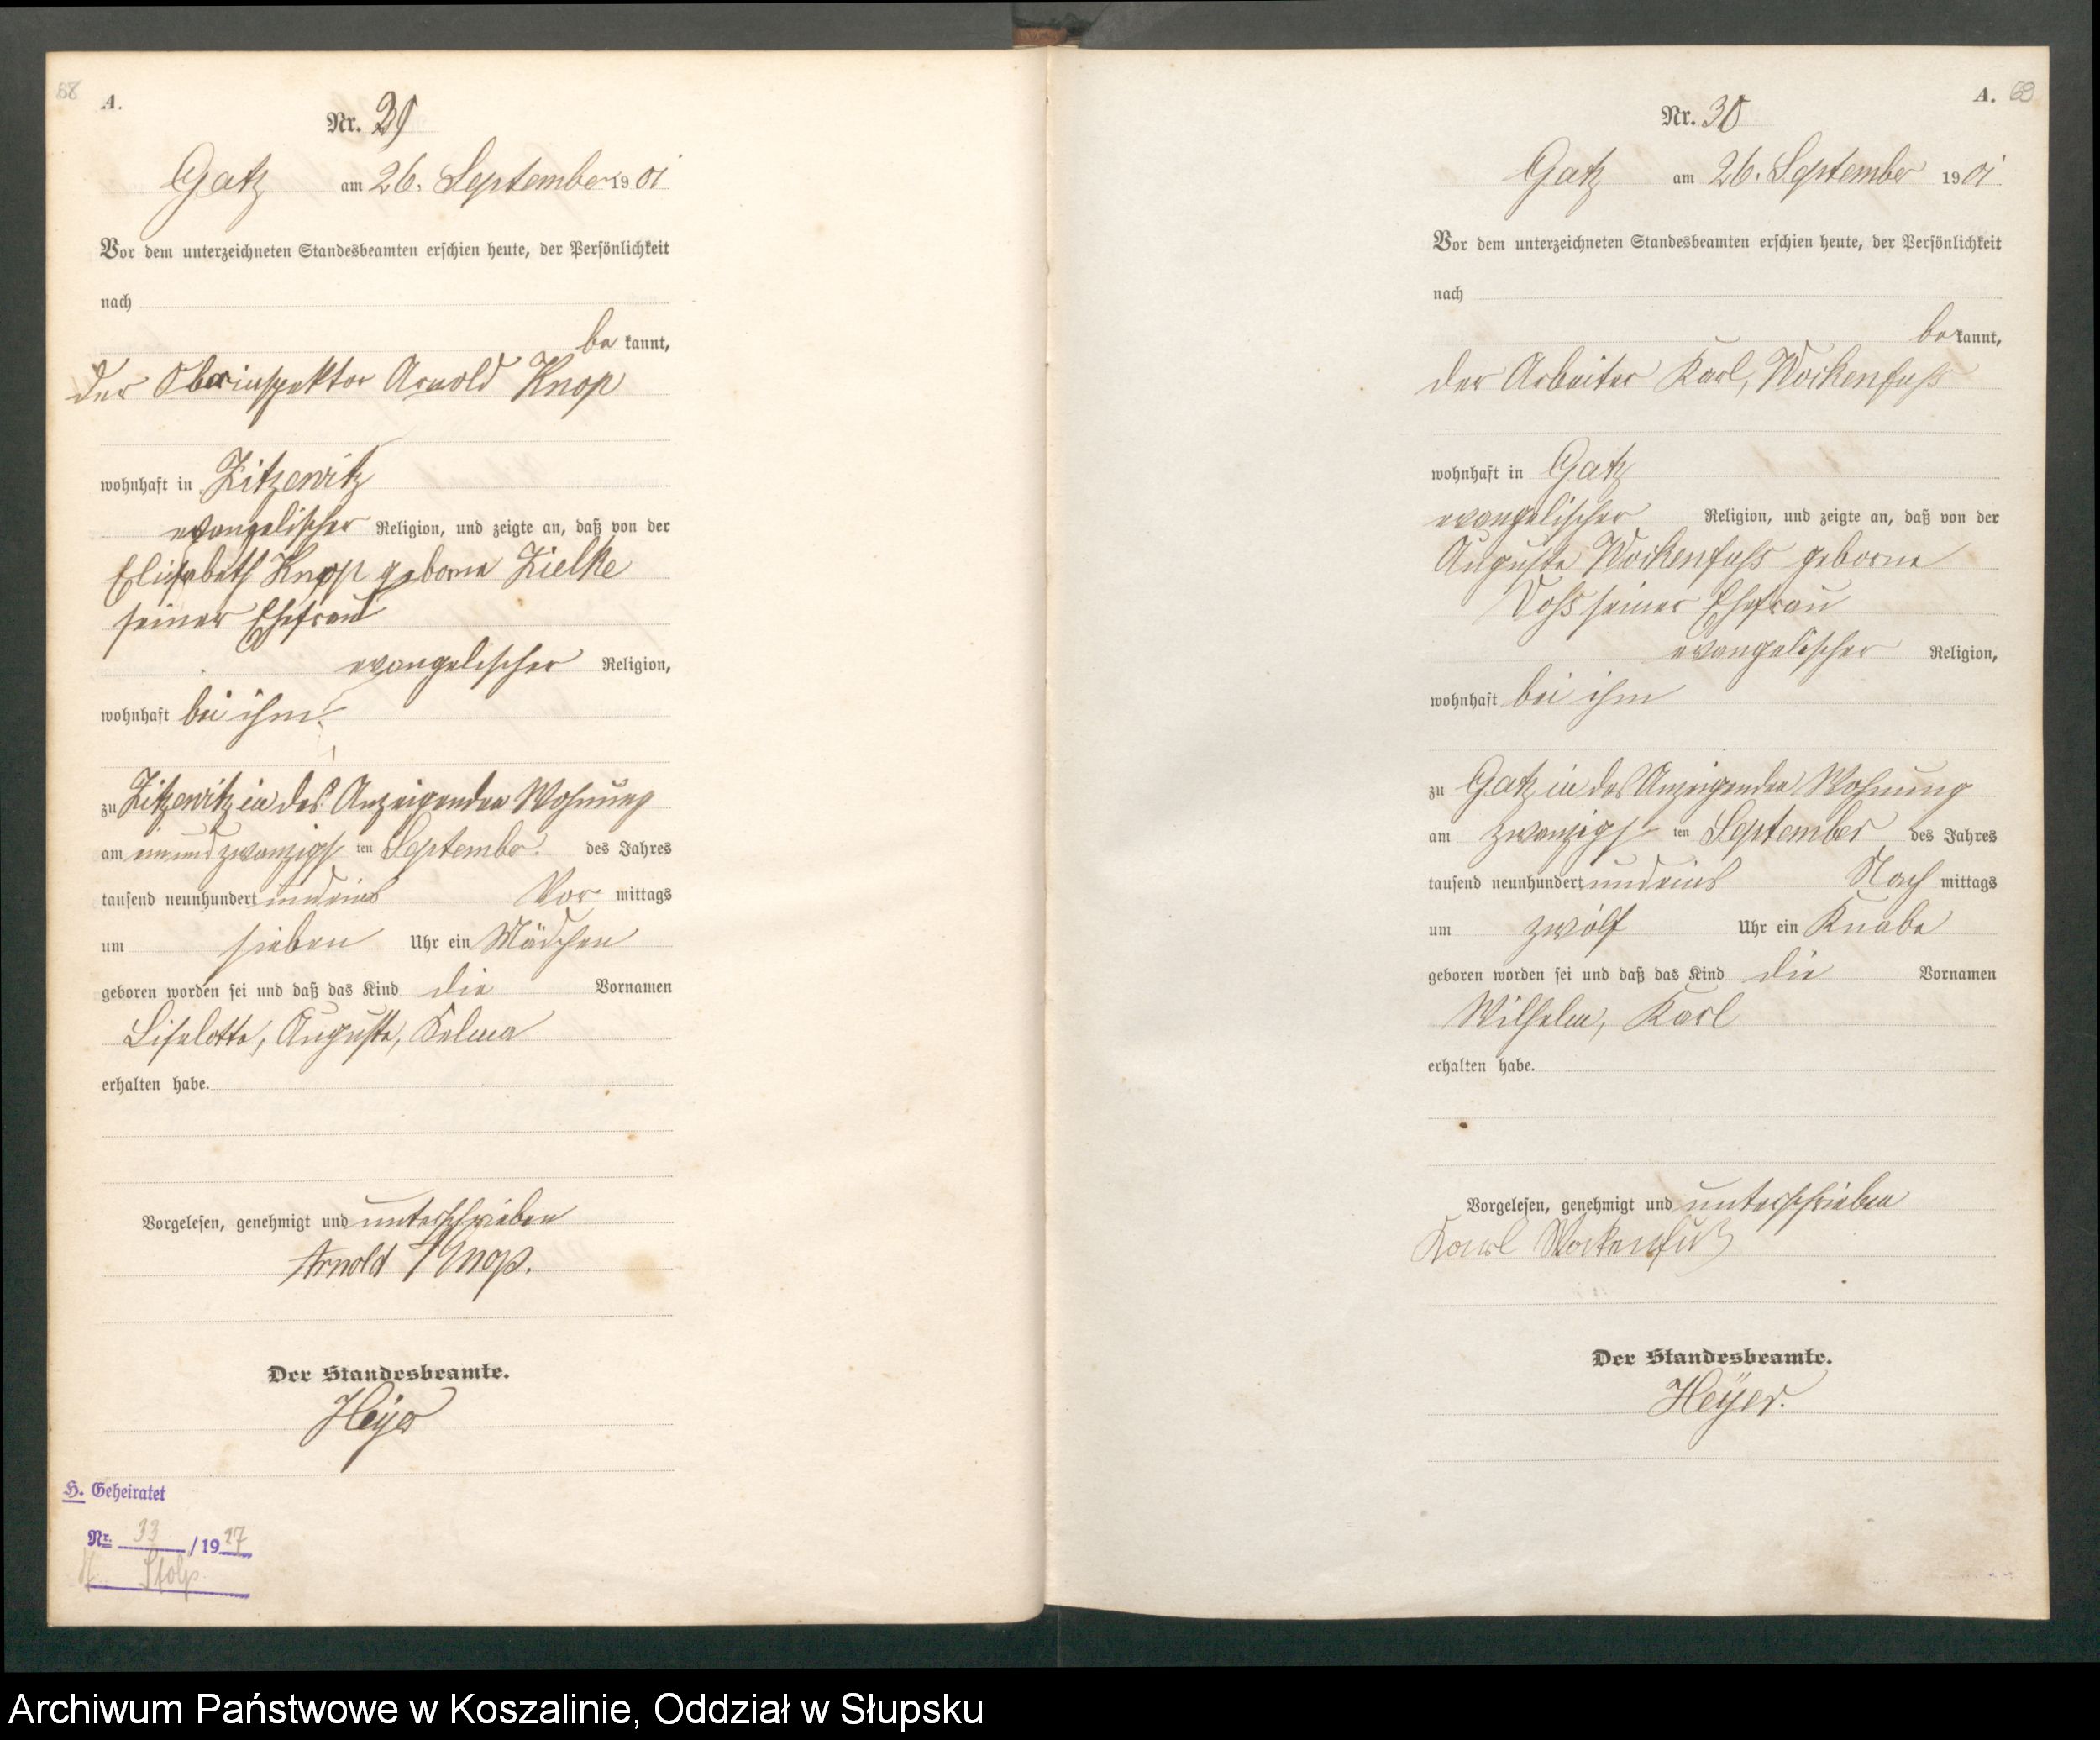 68
A.
Nr. 29
Gatz am 26. September 1901
Vor dem unterzeichneten Standesbeamten erschien heute, der Persönlichkeit
nach
be kannt,
der Oberinspektor Arnold Knop
wohnhaft in Zitzewitz
evangelischer Religion, und zeigte an, daß von der
Elisabeth Knop geborne Zielke
seiner Ehefrau
evangelischer Religion,
wohnhaft bei ihm
zu Zitzewitz in des Anzeigenden Wohnung
am einundzwanzigsten September des Jahres
tausend neunhundert undeins Vor mittags
um sieben Uhr ein Mädchen
geboren worden sei und daß das Kind die Vornamen
Liselotte, Auguste, Selma
erhalten habe.
Vorgelesen, genehmigt und unterschrieben
Arnold Knop.
Der Standesbeamte.
Heyer
H. Geheiratet
Nr. 33 / 1927
Stolp
A. 69
Nr. 30
Gatz am 26. September 1901
Vor dem unterzeichneten Standesbeamten erschien heute, der Persönlichkeit
nach
be kannt,
der Arbeiter Karl, Wockenfuß
wohnhaft in Gatz
evangelischer Religion, und zeigte an, daß von der
Auguste Wockenfuß geborne
Voß seiner Ehefrau
evangelischer Religion,
wohnhaft bei ihm
zu Gatz in des Anzeigenden Wohnung
am zwanzigsten September des Jahres
tausend neunhundert undeins Nach mittags
um zwölf Uhr ein Knabe
geboren worden sei und daß das Kind die Vornamen
Wilhelm, Karl
erhalten habe.
Vorgelesen, genehmigt und unterschrieben
Karl Wockenfuß
Der Standesbeamte.
Heÿer.
Archiwum Państwowe w Koszalinie, Oddział w Słupsku